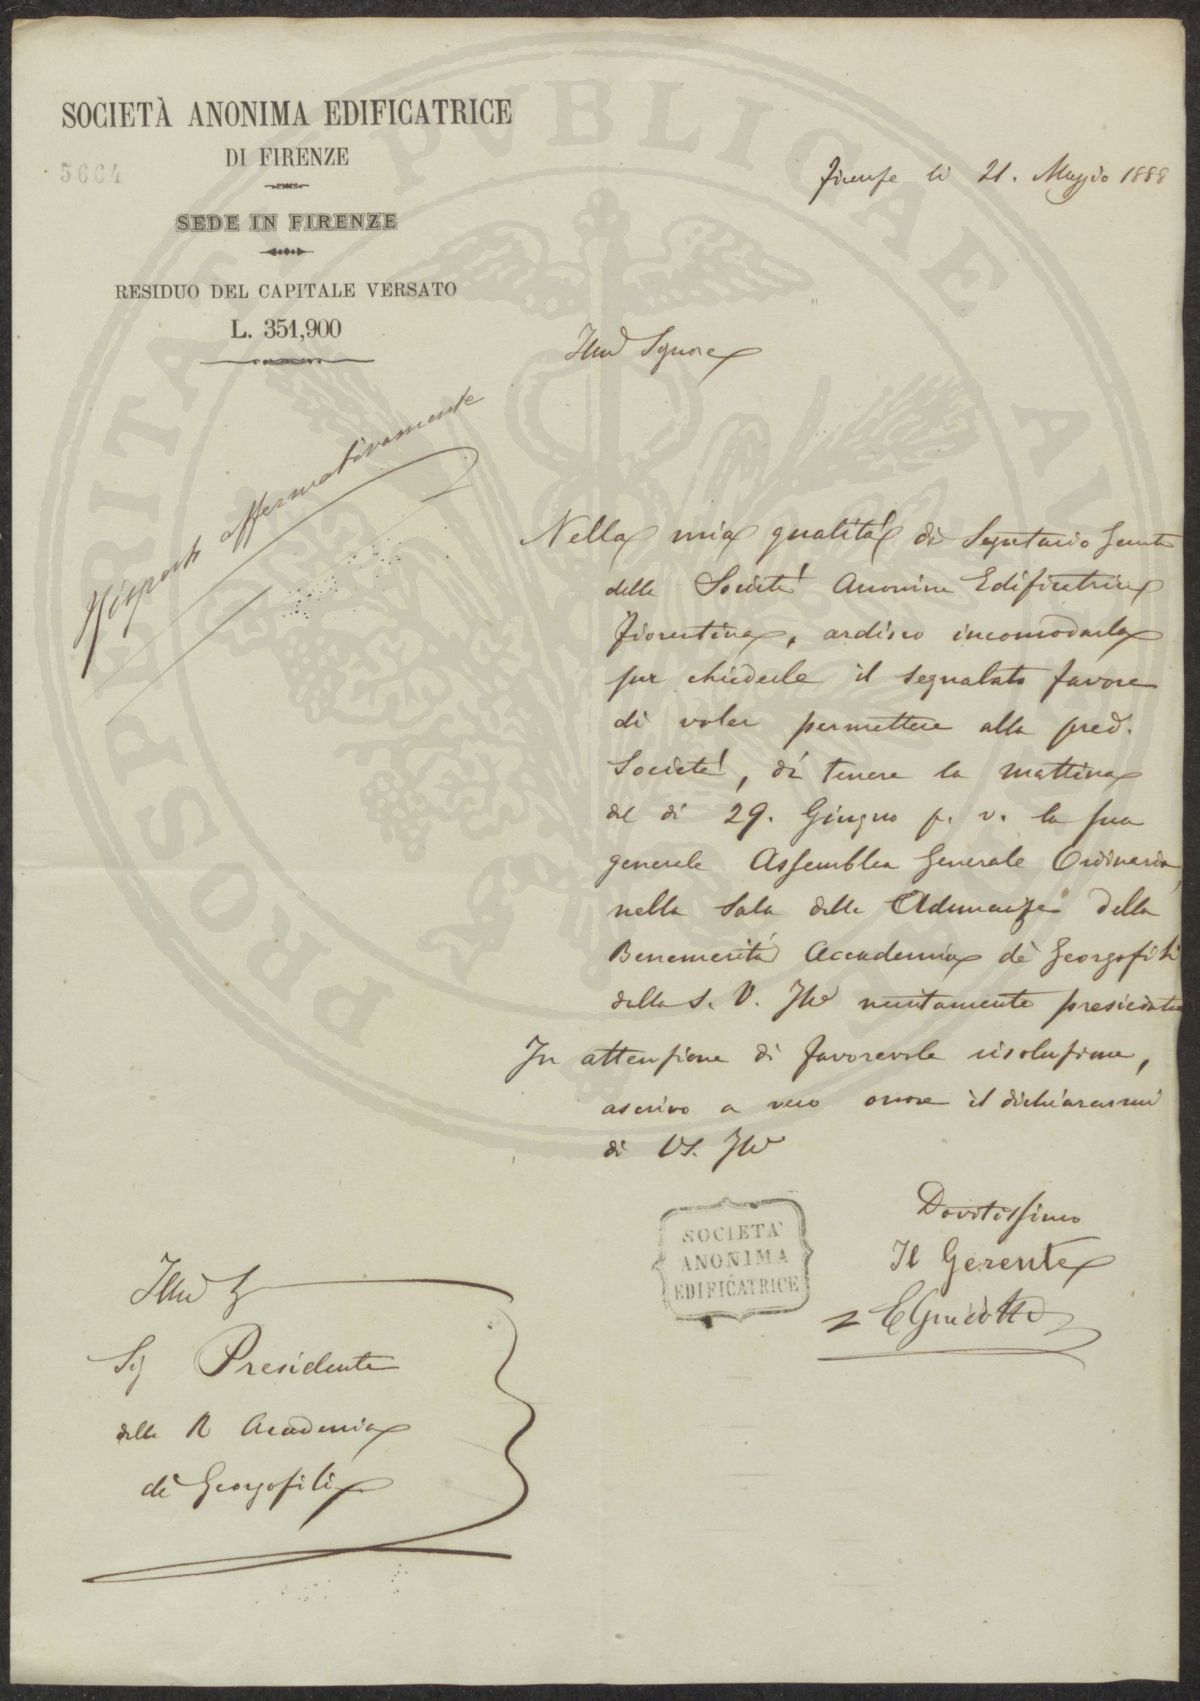 SOCIETÀ ANONIMA EDIFICATRICE
DI FIRENZE
5664
SEDE IN FIRENZE
RESIDUO DEL CAPITALE VERSATO
L. 351,900
Firenze li 21. Maggio 1888
Illmo Signore
Risposto affermativamente
Nella mia qualità di Segretario Gerente
della Società Anonima Edificatrice
Fiorentina, ardisco incomodarla
per chiederle il segnalato favore
di voler permettere alla pred.
Società, di tenere la mattina
del dì 29. Giugno p. v. la sua
generale Assemblea Generale Ordinaria,
nella Sala delle Adunanze della
Benemerita Accademia de' Georgofili
dalla S. V. Illma meritamente presieduta
In attenzione di favorevole risoluzione,
ascrivo a vero onore il dichiararmi
di VS. Illma
Devotissimo
Il Gerente
E Guidotti
SOCIETÀ
ANONIMA
EDIFICATRICE
Illmo
Sig Presidente
della R Accademia
de' Georgofili
PROSPERITATI PUBLICAE AU